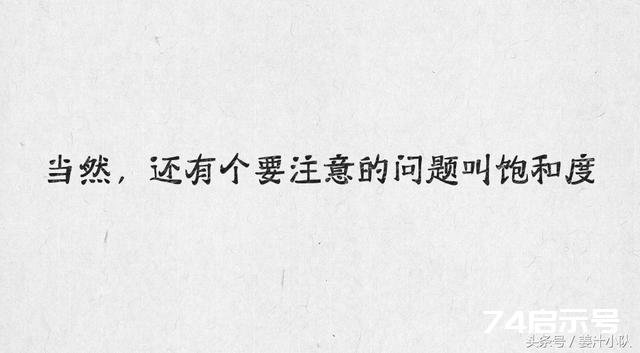 当然，还有个要注意的问题叫饱和度
74启示号
头条号/姜汁小队